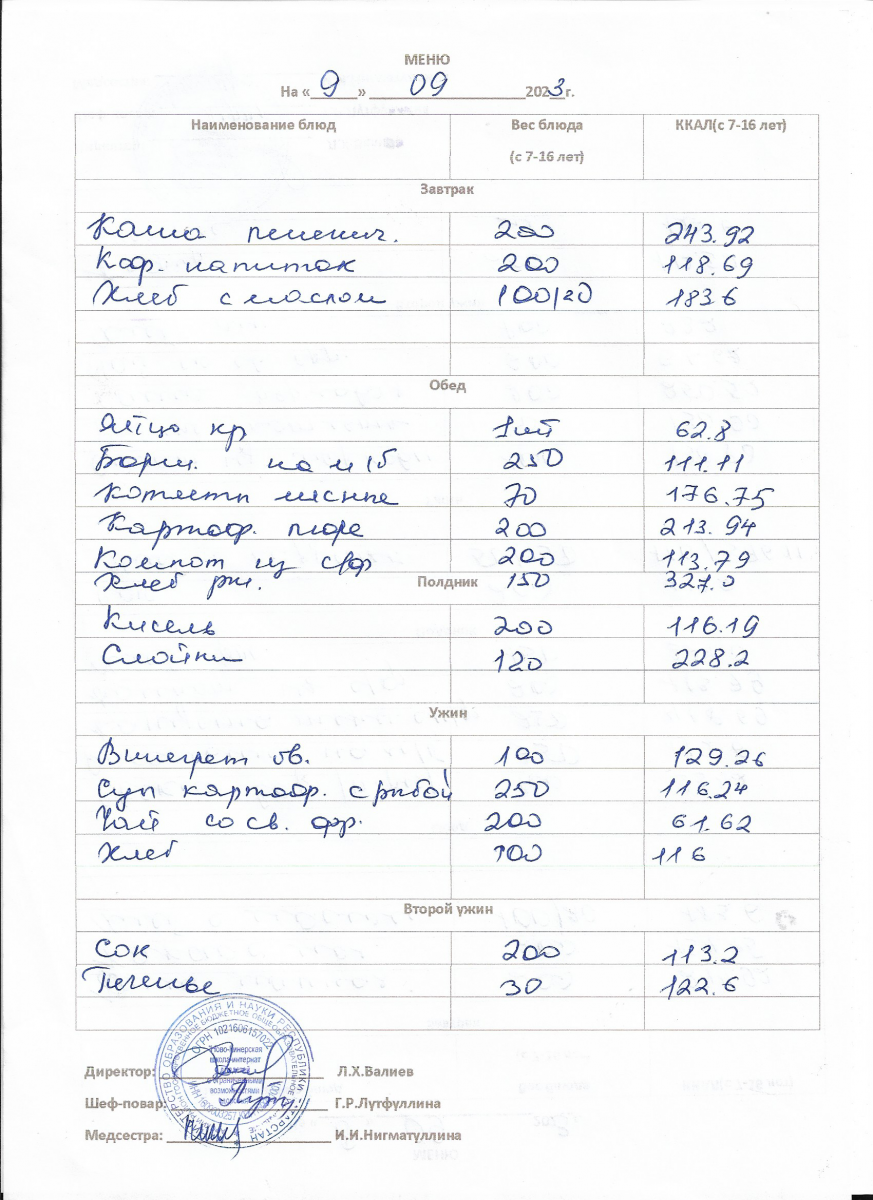 МЕНЮ
На « 9 » 09 2023 г.
Наименование блюд Вес блюда ККАЛ(с 7-16 лет)
(с 7-16 лет)
Завтрак
Каша пшенич. 200 243.92
Коф. напиток 200 118.69
Хлеб с маслом 100/20 183.6
Обед
Яйцо кр 1шт 62.8
Борщ на м/б 250 111.11
Котлеты мясные 70 176.75
Картоф. пюре 200 213.94
Компот из с/ф 200 113.79
Хлеб рж. 150 327.0
Полдник
Кисель 200 116.19
Слойки 120 228.2
Ужин
Винегрет ов. 100 129.26
Суп картоф. с рыбой 250 116.24
Чай со св. фр. 200 61.62
Хлеб 100 116
Второй ужин
Сок 200 113.2
Печенье 30 122.6
ОГРН 1021606157022
школа-интернат
Директор: Л.Х.Валиев
Шеф-повар: Г.Р.Лутфуллина
Медсестра: И.И.Нигматуллина